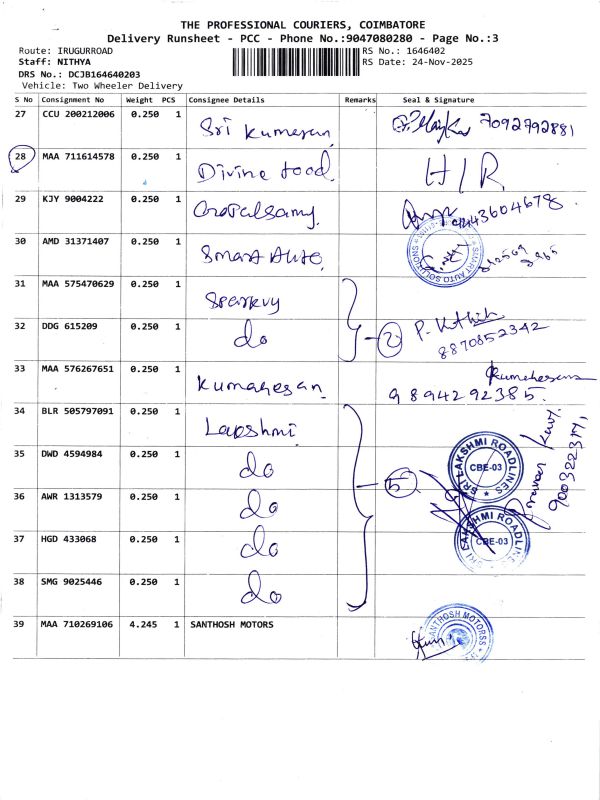 THE PROFESSIONAL COURIERS, COIMBATORE
Delivery Runsheet - PCC - Phone No.:9047080280 - Page No.:3
Route: IRUGURROAD
RS No.: 1646402
Staff: NITHYA
RS Date: 24-Nov-2025
DRS No.: DCJB164640203
Vehicle: Two Wheeler Delivery
S No Consignment No Weight PCS Consignee Details Remarks Seal & Signature
27 CCU 200212006 0.250 1 Sri Kumaran 7092792881
28 MAA 711614578 0.250 1 Divine food H/R
29 KJY 9004222 0.250 1 Gopalsamy
30 AMD 31371407 0.250 1 Smart Auto SMART AUTO SOLUTIONS
31 MAA 575470629 0.250 1
32 DDG 615209 0.250 1 do 2 8870852342
33 MAA 576267651 0.250 1 Kumaresan Kumaresan 9894292385
34 BLR 505797091 0.250 1 Lakshmi
35 DWD 4594984 0.250 1 do SRI LAKSHMI ROADLINES CBE-03
36 AWR 1313579 0.250 1 do 5
37 HGD 433068 0.250 1 do SRI LAKSHMI ROADLINES CBE-03
38 SMG 9025446 0.250 1 do
39 MAA 710269106 4.245 1 SANTHOSH MOTORS SANTHOSH MOTORSS